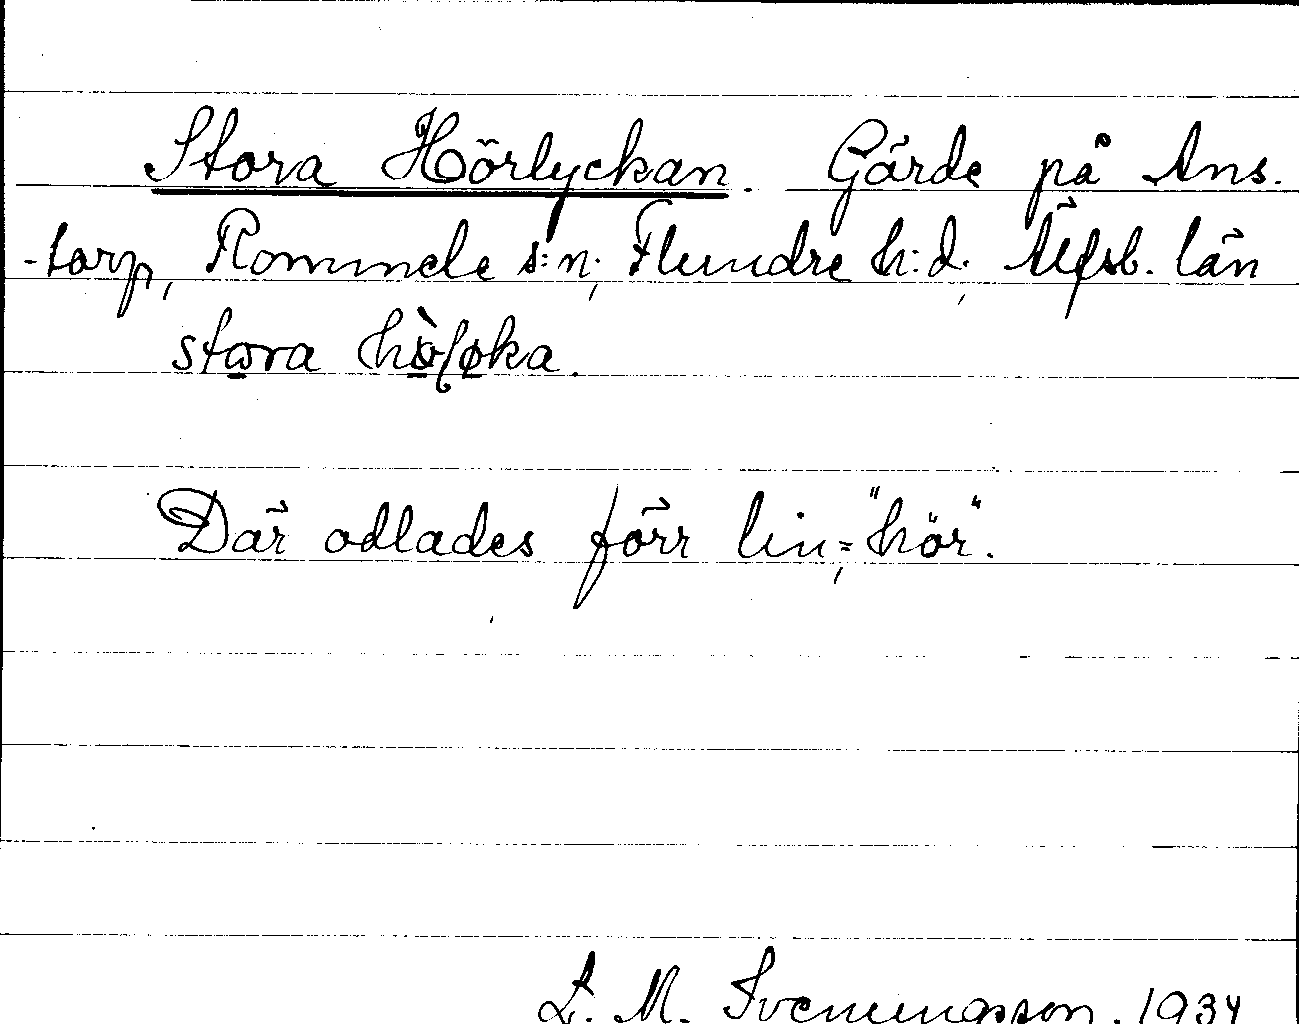 Stora Hörlyckan. Gärde på Ans-
-torp, Rommele s:n, Flundre h:d, Älfsb. län
stora
Där odlades förr lin, = "hör".
L. M. Svenungsson. 1934